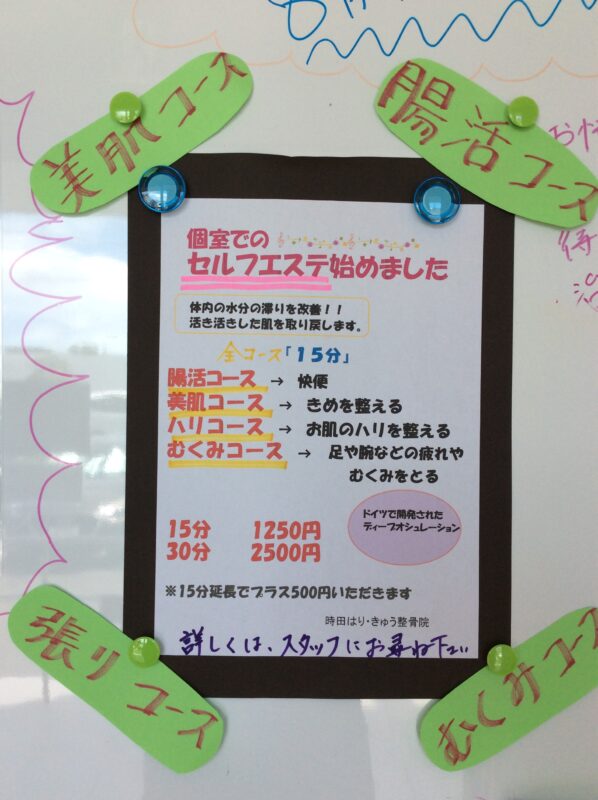 美肌コース
腸活コース
個室での
セルフエステ始めました
体内の水分の滞りを改善!!
活き活きした肌を取り戻します。
全コース「15分」
腸活コース → 快便
美肌コース → きめを整える
ハリコース → お肌のハリを整える
むくみコース → 足や腕などの疲れや
むくみをとる
ドイツで開発された
ディープオシュレーション
15分 1250円
30分 2500円
※15分延長でプラス500円いただきます
時田はり・きゅう整骨院
詳しくは、スタッフにお尋ね下さい
張りコース
むくみコース